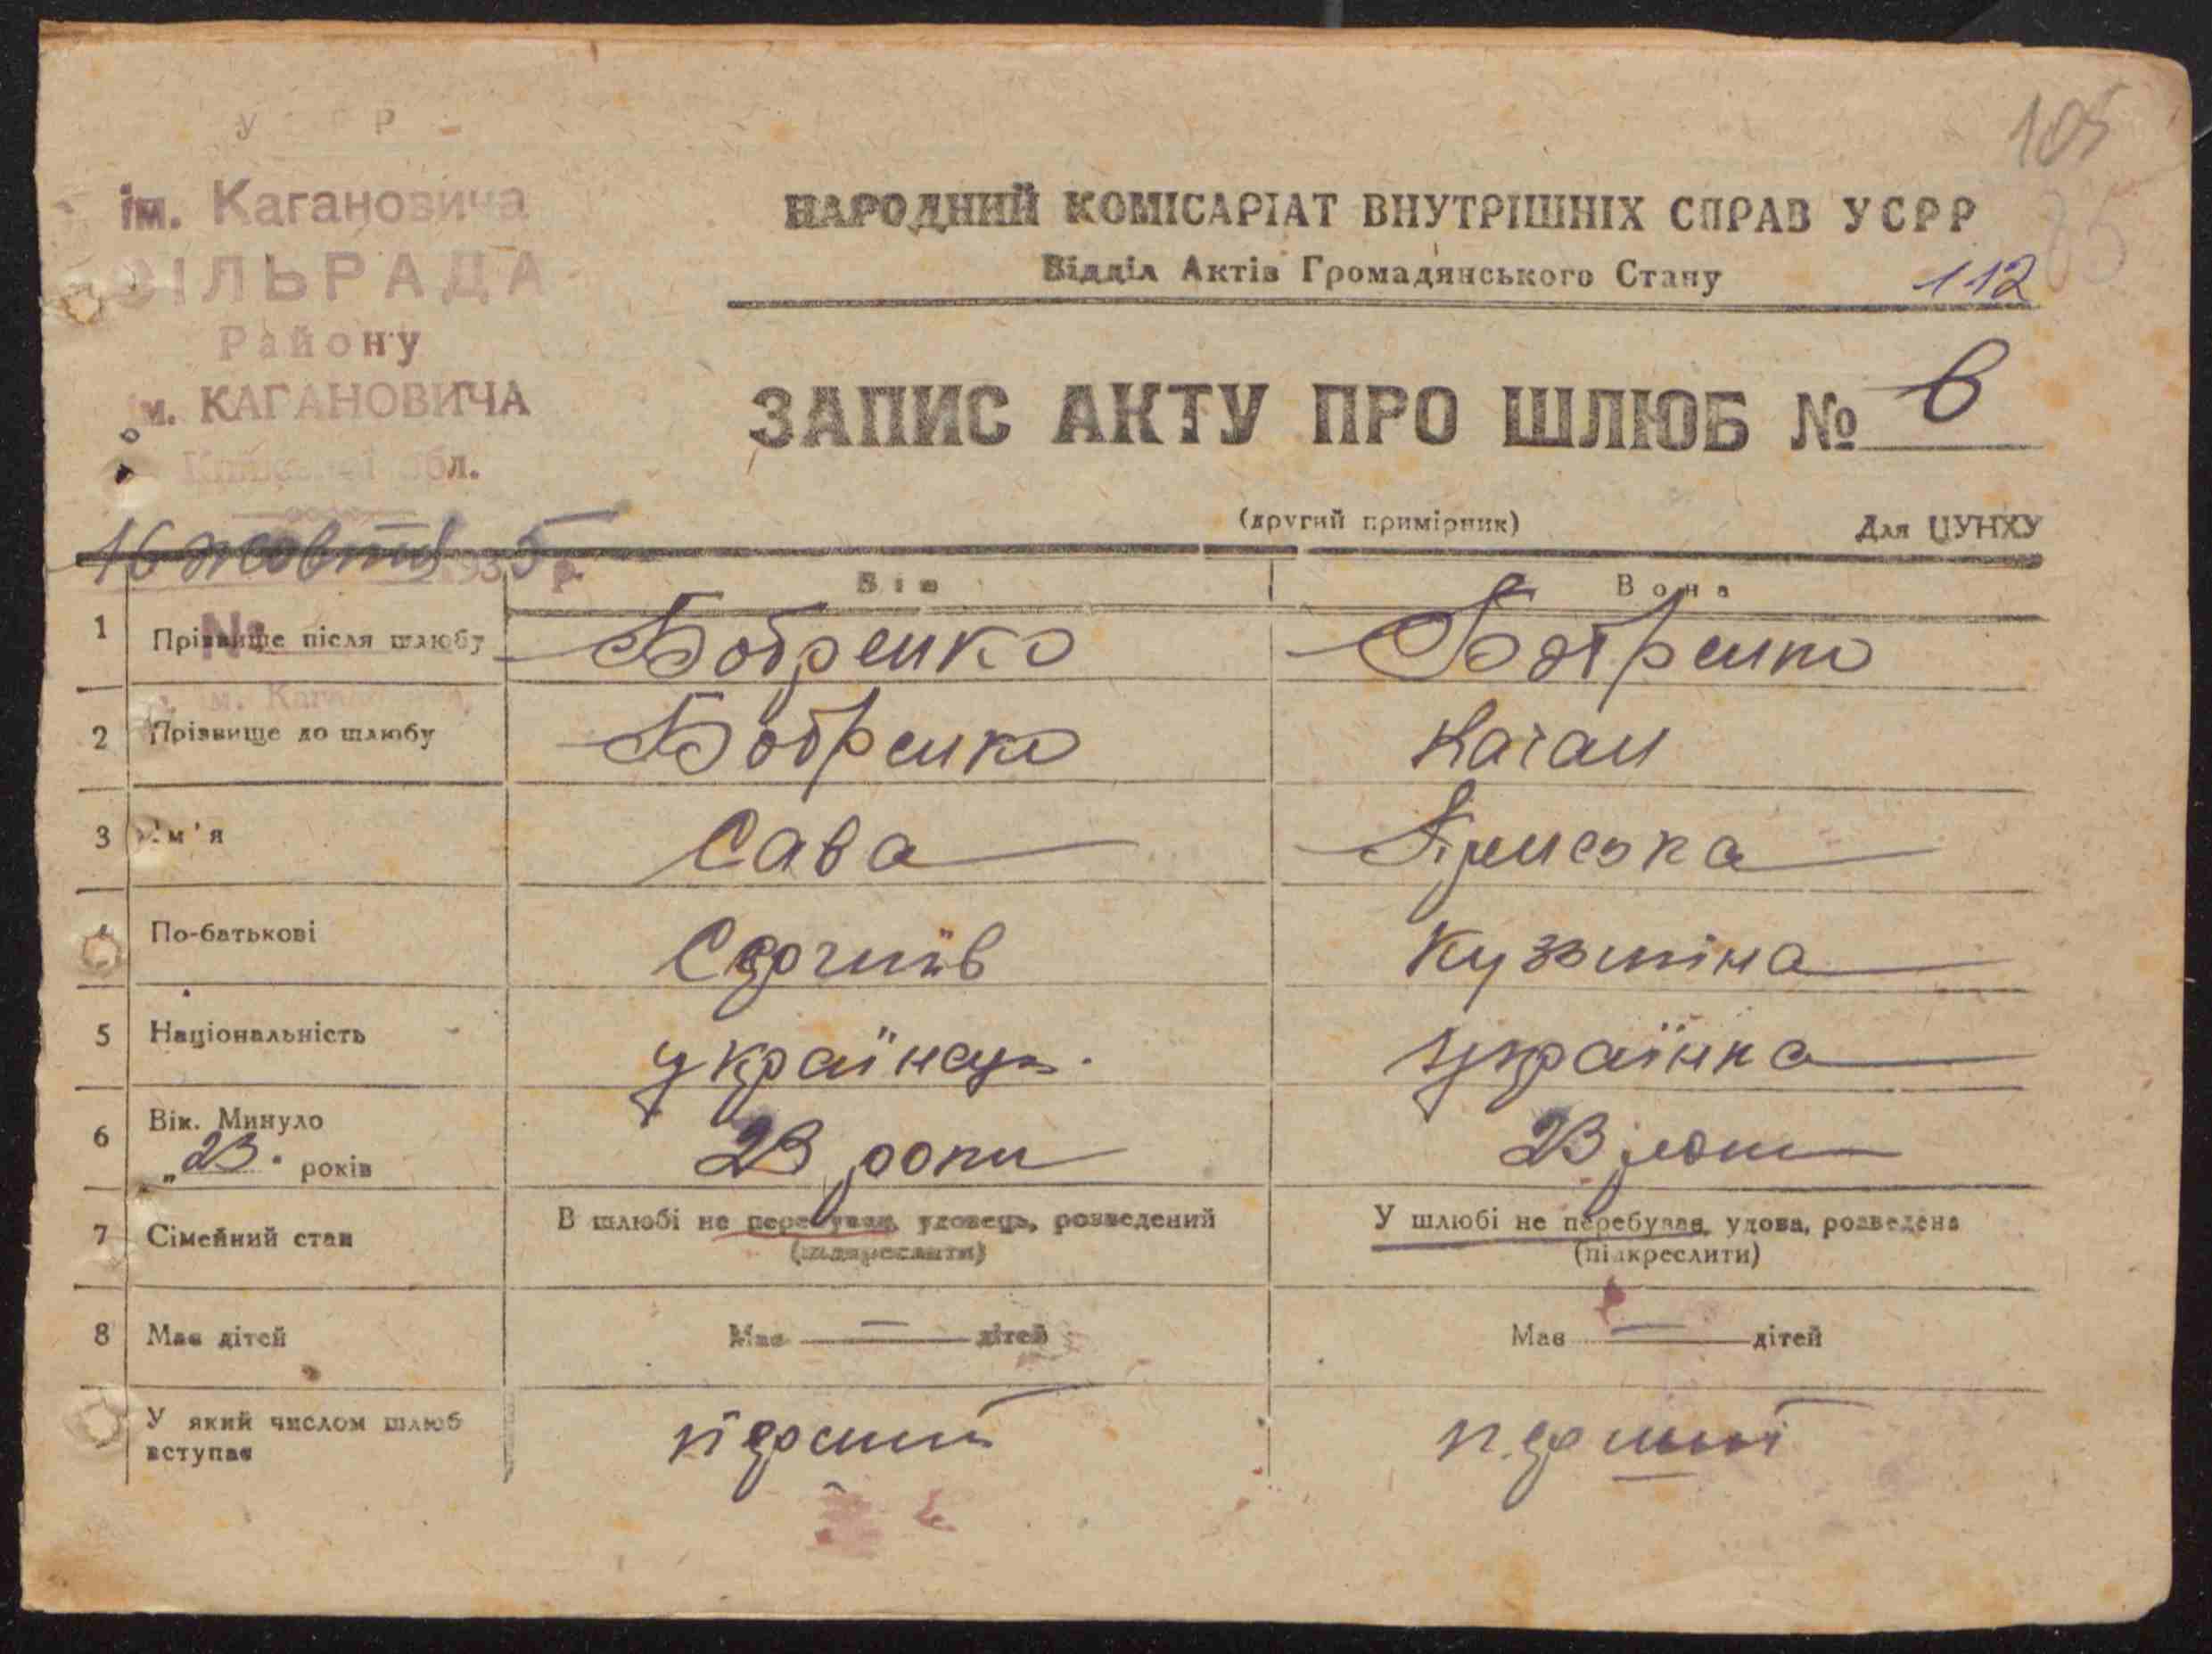 105
ім. Кагановича
СІЛЬРАДА
Району
ім. КАГАНОВИЧА
Київської обл.
16 жовтня 1935 р.
№
НАРОДНИЙ КОМІСАРІАТ ВНУТРІШНІХ СПРАВ УСРР
Відділ Актів Громадянського Стану
112
ЗАПИС АКТУ ПРО ШЛЮБ № 6
(другий примірник) Для ЦУНХУ
Він Вона
1 Прізвище після шлюбу Бобренко Бобренко
2 Прізвище до шлюбу Бобренко Каган
3 Ім'я Сава
4 По-батькові Сергіїв Кузьміна
5 Національність українець. українка
6 Вік. Минуло „23" років 23 роки 23 роки
7 Сімейний стан В шлюбі не перебував, удовець, розведений (підкреслити) У шлюбі не перебувала, удова, розведена (підкреслити)
8 Має дітей Має — дітей Має — дітей
У який числом шлюб вступає перший перший